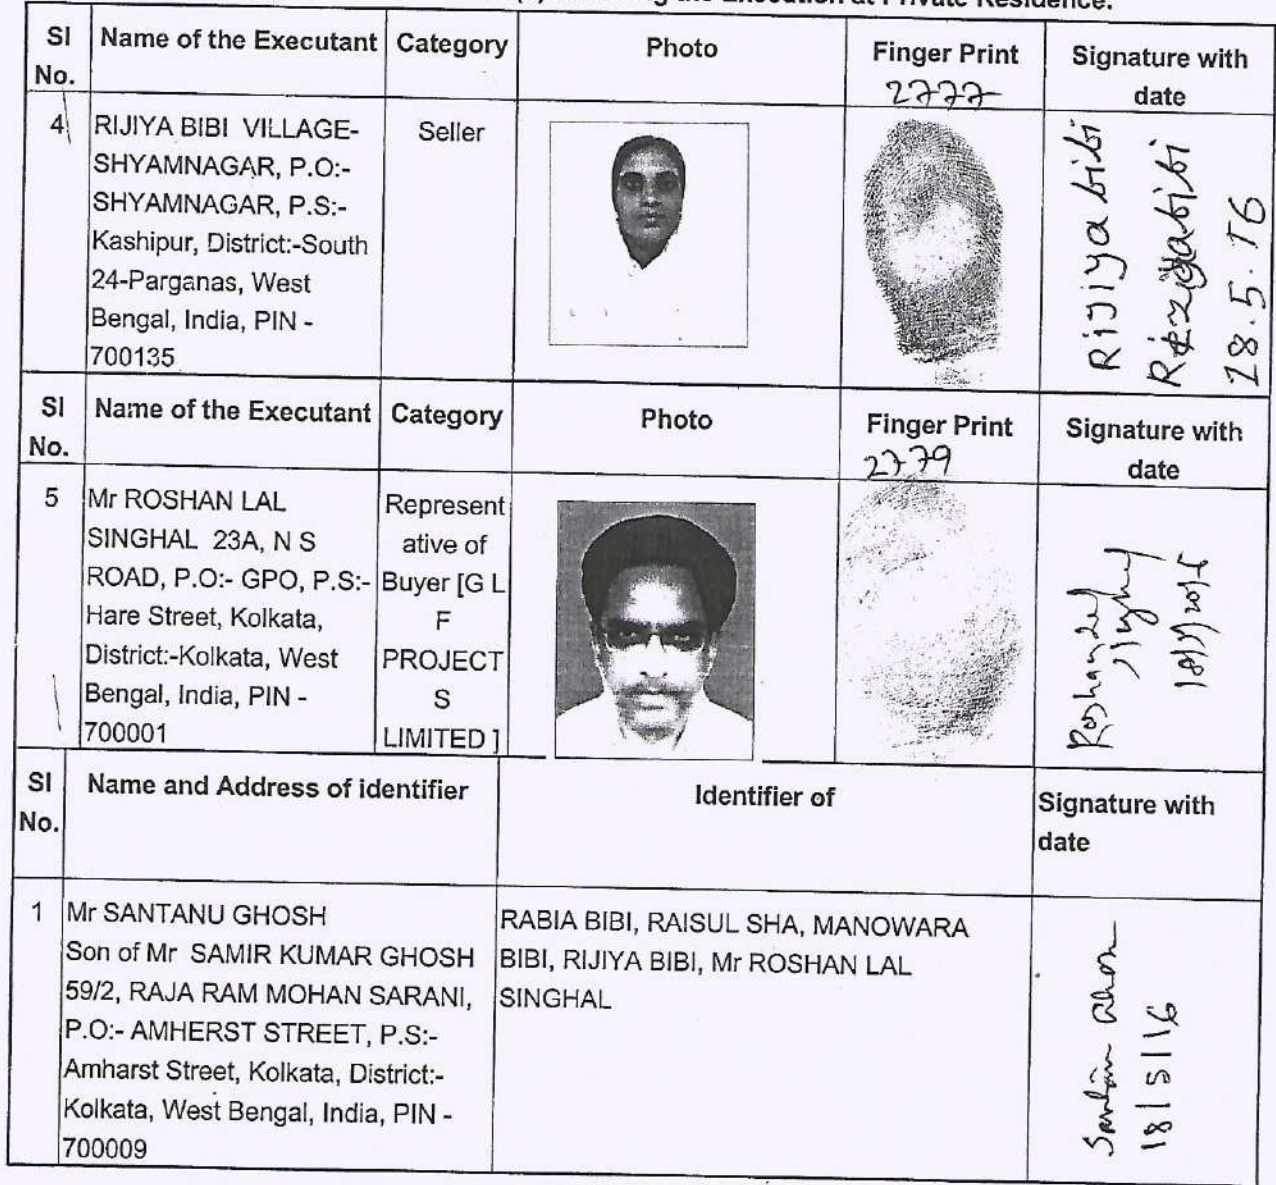 the Execution at Private Residence.
Sl No.
Name of the Executant
Category
Photo
Finger Print
2777
Signature with
date
4
RIJIYA BIBI VILLAGE-
SHYAMNAGAR, P.O:-
SHYAMNAGAR, P.S:-
Kashipur, District:-South
24-Parganas, West
Bengal, India, PIN -
700135
Seller
Rijiya bibi
18.5.16
Sl No.
Name of the Executant
Category
Photo
Finger Print
2779
Signature with
date
5
Mr ROSHAN LAL
SINGHAL 23A, N S
ROAD, P.O:- GPO, P.S:-
Hare Street, Kolkata,
District:-Kolkata, West
Bengal, India, PIN -
700001
Represent
ative of
Buyer [G L
F
PROJECT
S
LIMITED ]
Sl No.
Name and Address of identifier
Identifier of
Signature with
date
1
Mr SANTANU GHOSH
Son of Mr SAMIR KUMAR GHOSH
59/2, RAJA RAM MOHAN SARANI,
P.O:- AMHERST STREET, P.S:-
Amharst Street, Kolkata, District:-
Kolkata, West Bengal, India, PIN -
700009
RABIA BIBI, RAISUL SHA, MANOWARA
BIBI, RIJIYA BIBI, Mr ROSHAN LAL
SINGHAL
18/5/16